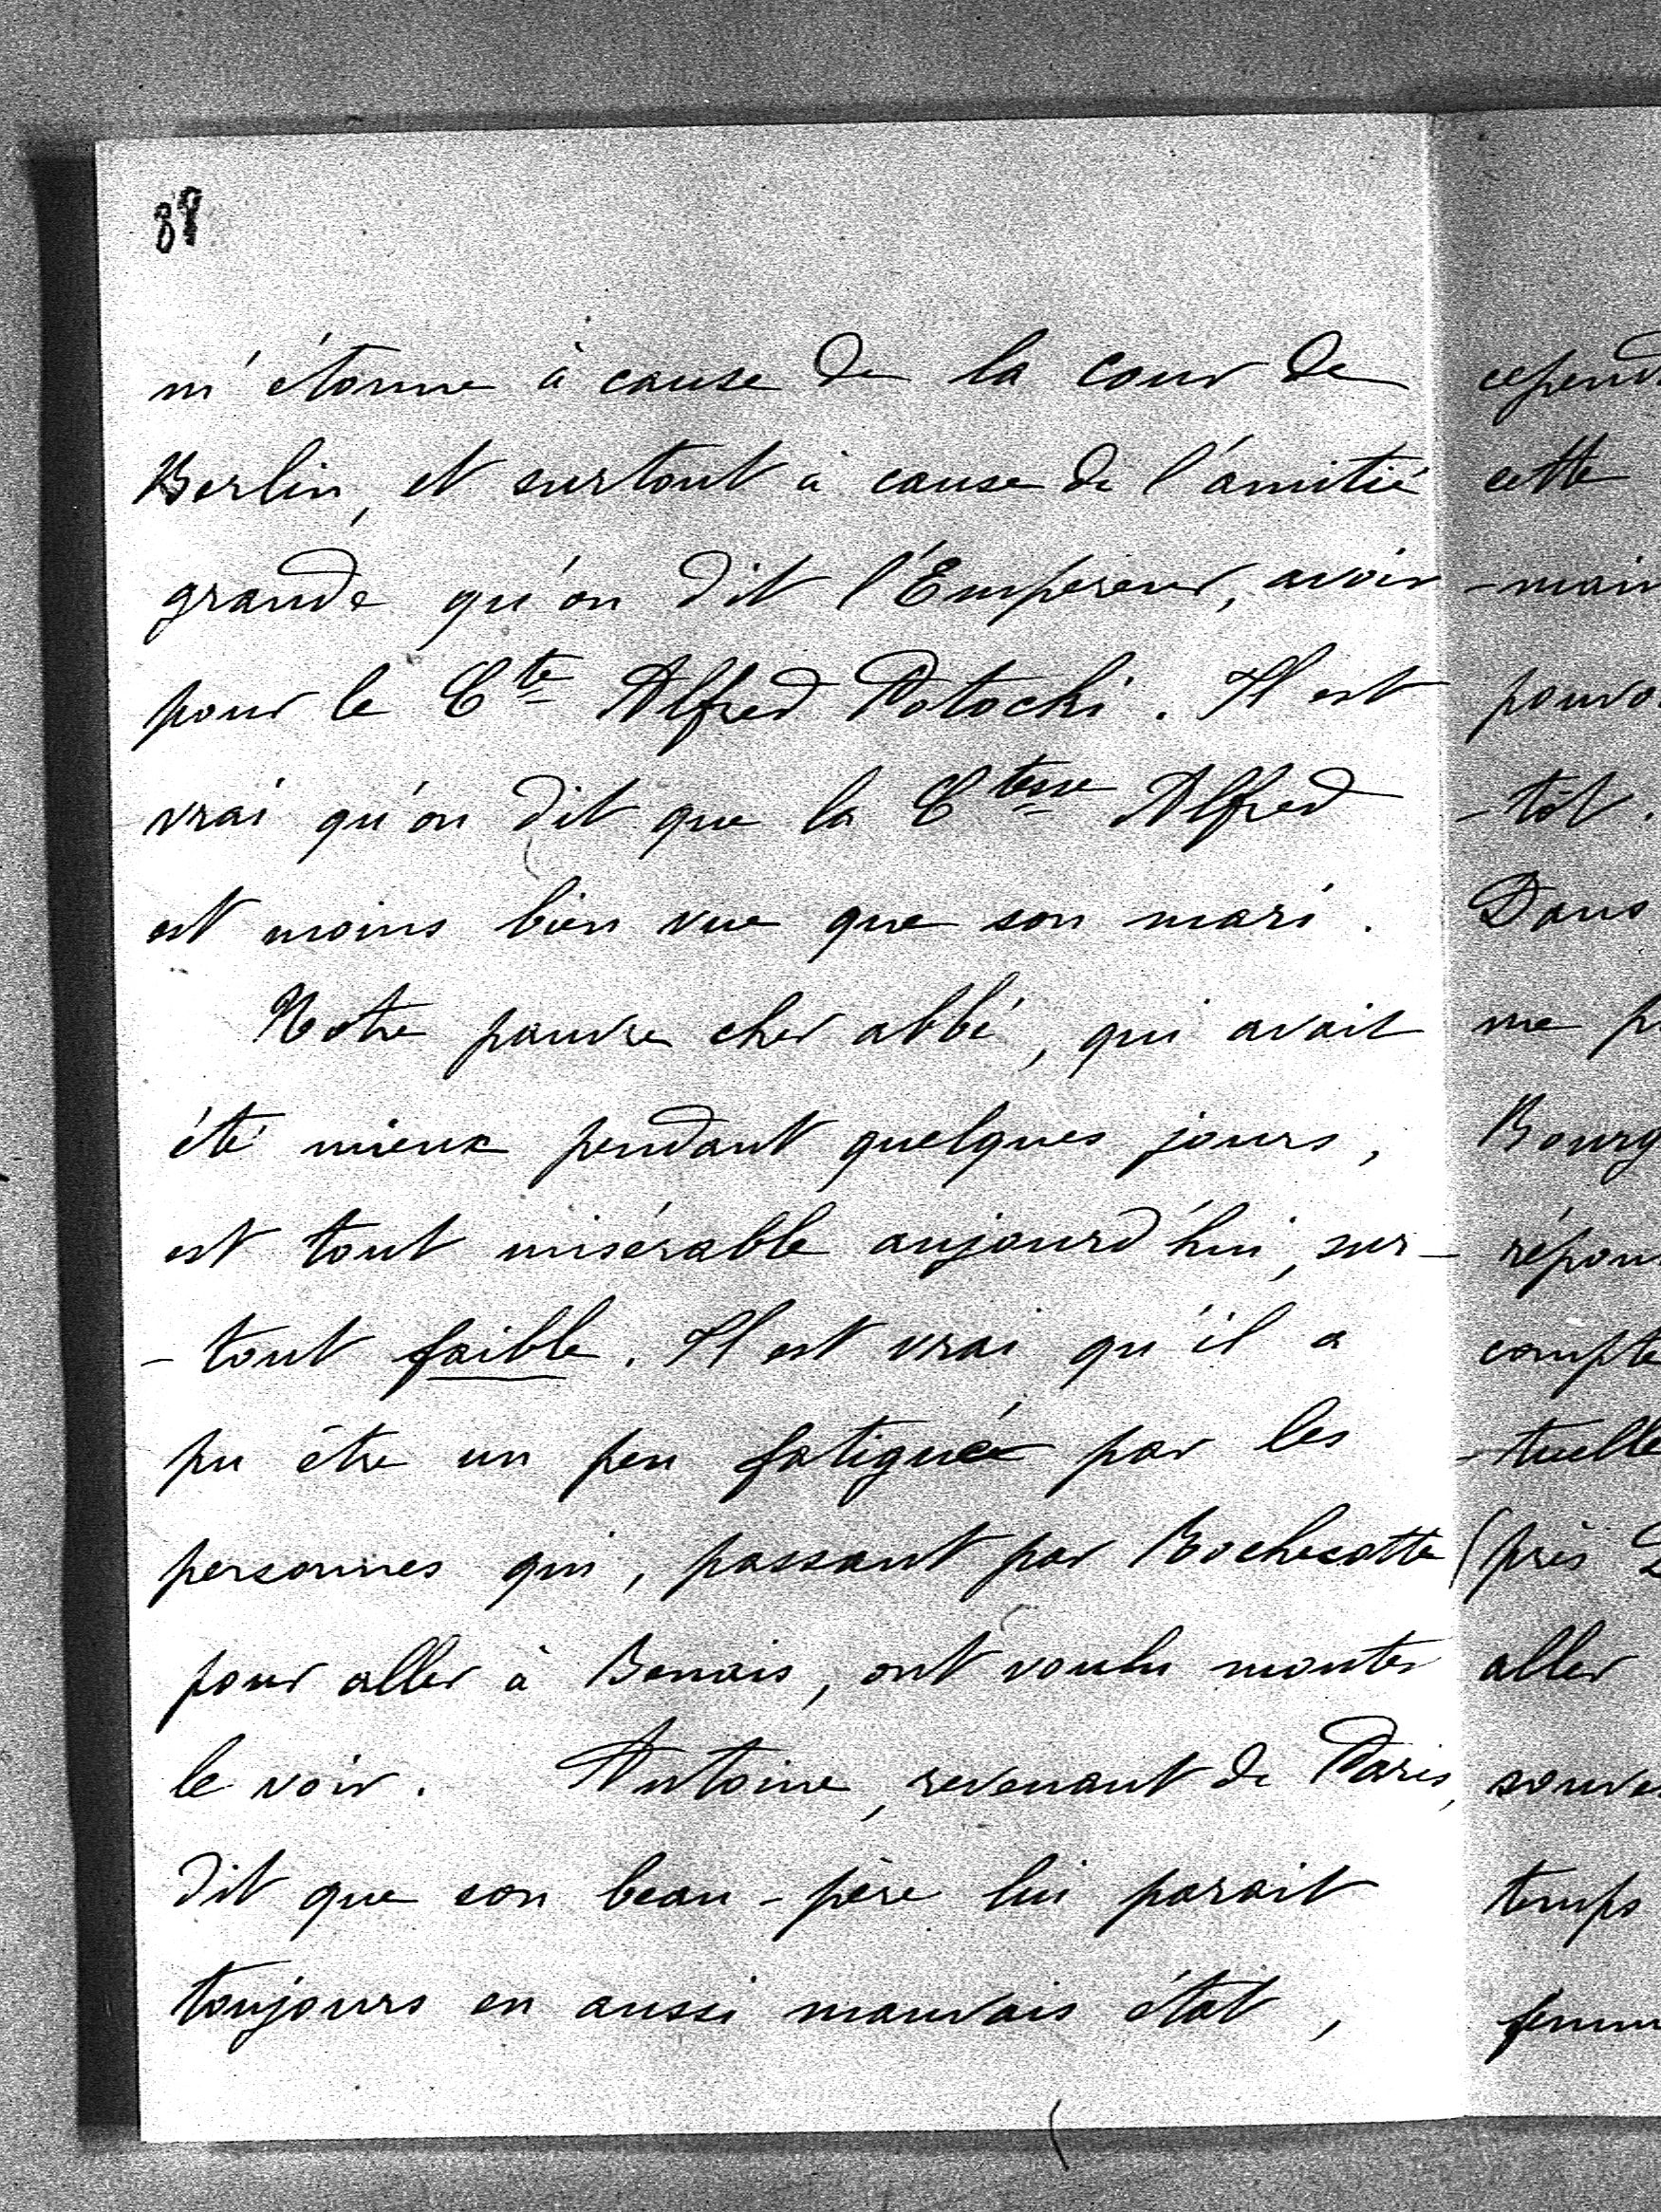 88
m'étonne à cause de la cour de
Berlin, et surtout à cause de l'amitié
grande qu'on dit l'Empereur, avoir
pour le Cte Alfred Potocki. Il est
vrai qu'on dit que la Ctesse Alfred
est moins bien vue que son mari.
Notre pauvre cher abbé, qui avait
été mieux pendant quelques jours,
est tout misérable aujourd'hui, sur-
-tout faible. Il est vrai qu'il a
pu être un peu fatigué par les
personnes qui, passant par Rochecotte
pour aller à Benais, ont voulu monter
le voir. Antoine, revenant de Paris,
dit que son beau-père lui parait
toujours en aussi mauvais état,
cepend
cette
-main
pouvo
-tôt.
Dans
me p
Bourg
répon
compte
-tuelle
(près
aller
souve
temps
femm